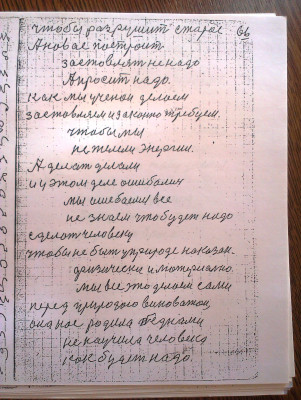 чтобы разрушит старое 66
А новае построит
заставлят не надо
А просит надо.
как мы учёнои делаем
заставляем и законно требуем.
чтобы мы
не имели энергии.
А делат делали
и и этом деле ошибалис
мы ошибаеми все
не знаем что будет надо
сделат человеку
чтобы не быт уприроде наказан.
физически и материално.
мы все это делаем сами
перед природаю виноватаи
она нас родила
не научила человека
как будет надо.